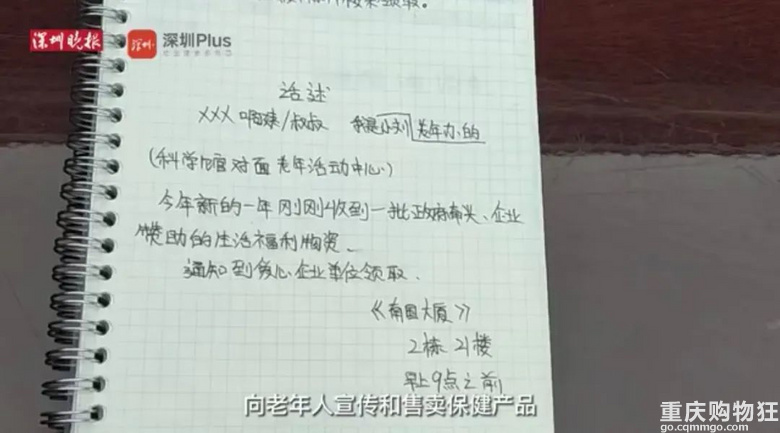 深圳晚报 深圳 深圳Plus
话述
XXX 啊姨/叔叔 我是小刘 老年办的
(科学馆对面老年活动中心)
今年新的一年刚刚收到一批政府牵头、企业
赞助的生活福利物资、
通知到爱心企业单位领取.
《南国大厦》
2栋 21楼
早上9点之前
向老年人宣传和售卖保健产品
重庆购物狂
go.cqmmgo.com